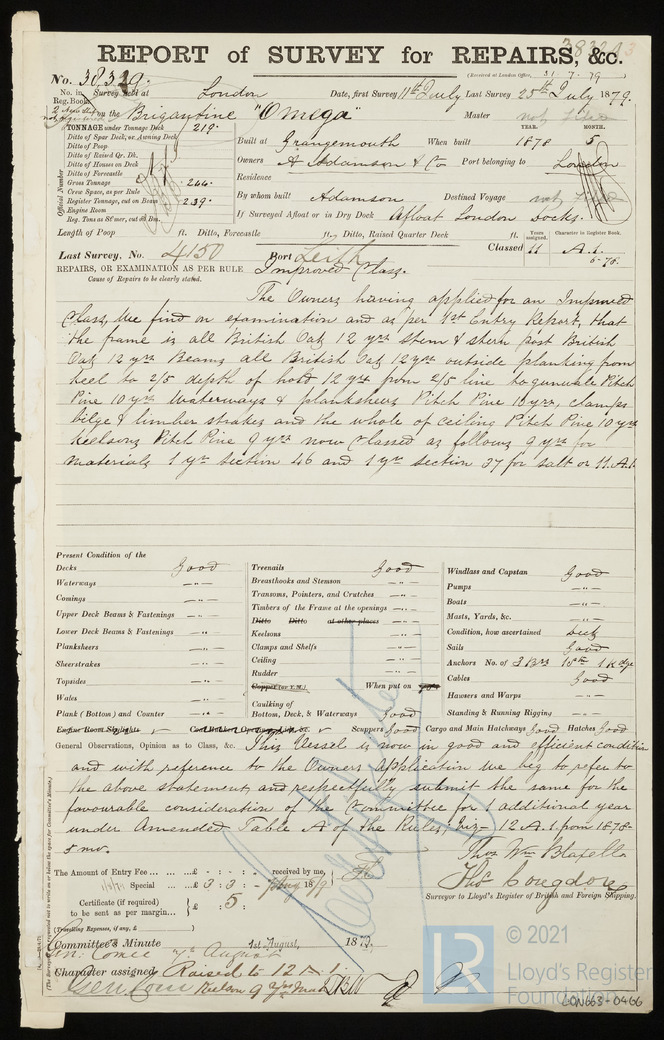 REPORT of SURVEY for REPAIRS, &c.
(Received at London Office, 31.7.79)
No. 38329.
No. in Reg. Book. Survey held at London Date, first Survey 11th July Last Survey 25th July 1879.
on the Brigantine "Omega" Master
TONNAGE under Tonnage Deck 219.
Ditto of Spar Deck, or Awning Deck
Ditto of Poop
Ditto of Raised Qr. Dk.
Ditto of Houses on Deck
Ditto of Forecastle
Gross Tonnage 244.
Crew Space, as per Rule
Register Tonnage, cut on Beam 239.
Engine Room
Reg. Tons as Stmer, cut on Bm.
Official Number
YEAR. MONTH.
Built at Grangemouth When built 1878 5
Owners A Adamson & Co Port belonging to London
Residence
By whom built Adamson Destined Voyage
If Surveyed Afloat or in Dry Dock Afloat London Docks.
Length of Poop ft. Ditto, Forecastle ft. Ditto, Raised Quarter Deck ft.
Years assigned. Character in Register Book.
Last Survey, No. 4150 Port Leith Classed 11 A.1.
5-78.
REPAIRS, OR EXAMINATION AS PER RULE Improved Class.
Cause of Repairs to be clearly stated.
The Owners having applied for an Improved
Class, We find on examination and as per 1st Entry Report, that
the frame is all British Oak 12 yrs stem & stern post British
Oak 12 yrs Beams all British Oak 12 yrs outside planking from
keel to 2/5 depth of hold 12 yrs from 2/5 line to gunwale Pitch
Pine 10 yrs Waterways & plankshears Pitch Pine 10 yrs, clamps
bilge & limber strakes and the whole of ceiling Pitch Pine 10 yrs
Keelsons Pitch Pine 9 yrs now Classed as follows 9 yrs for
materials 1 yr section 46 and 1 yr section 37 for salt or 11.A.1.
Present Condition of the
Decks Good
Waterways -"-
Comings -"-
Upper Deck Beams & Fastenings -"-
Lower Deck Beams & Fastenings -"-
Planksheers -"-
Sheerstrakes -"-
Topsides -"-
Wales -"-
Plank (Bottom) and Counter -"-
Treenails Good
Breasthooks and Stemson -"-
Transoms, Pointers, and Crutches -"-
Timbers of the Frame at the openings -"-
Ditto Ditto at other places
Keelsons -"-
Clamps and Shelfs -"-
Ceiling -"-
Rudder -"-
Copper (or Y.M.) When put on
Caulking of
Bottom, Deck, & Waterways Good
Windlass and Capstan Good
Pumps -"-
Boats -"-
Masts, Yards, &c. -"-
Condition, how ascertained
Sails Good
Anchors No. of 3 Brs 1 Stm 1 Kdge
Cables Good
Hawsers and Warps -"-
Standing & Running Rigging -"-
Engine Room Skylights Coal Bunker Openings, Lids, &c. Scuppers Good Cargo and Main Hatchways Good Hatches Good
General Observations, Opinion as to Class, &c. This Vessel is now in good and efficient condition
and with reference to the Owners Application we beg to refer to
the above statement, and respectfully submit the same for the
favourable consideration of the Committee for 1 additional year
under Amended Table A of the Rules, Viz- 12 A.1. from 1878-
5 mo.
The Amount of Entry Fee ... £ : : received by me,
Special ... £ 3 : 3 : - Aug 1879
Certificate (if required) to be sent as per margin... £ : 5 :
(Travelling Expenses, if any, £ )
Thos Congdon
Surveyor to Lloyd's Register of British and Foreign Shipping.
Committee's Minute 1st August, 1879.
Gen: Comee 7th August
Character assigned Raised to 12 A.1
Keelson 9 yrs Matl
© 2021
Lloyd's Register
Foundation
LON663-0466